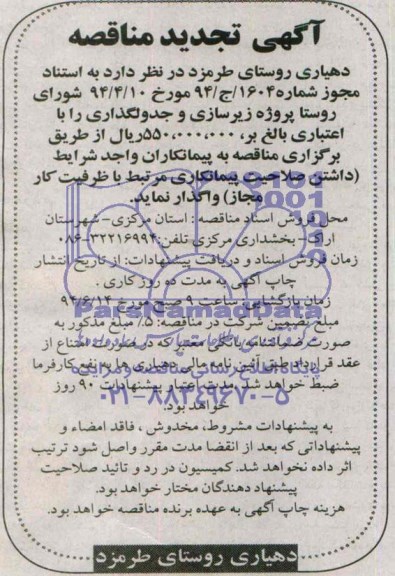 آگهی تجدید مناقصه
دهیاری روستای طرمزد در نظر دارد به استناد
مجوز شماره ۱۶۰۴/ج/۹۴ مورخ ۹۴/۴/۱۰ شورای
روستا پروژه زیرسازی و جدولگذاری را با
اعتباری بالغ بر، ۵۵۰،۰۰۰،۰۰۰ریال از طریق
برگزاری مناقصه به پیمانکاران واجد شرایط
(داشتن صلاحیت پیمانکاری مرتبط با ظرفیت کار
مجاز) واگذار نماید.
محل فروش اسناد مناقصه : استان مرکزی- شهرستان
اراک- بخشداری مرکزی تلفن:۳۲۲۱۶۹۹۴-۰۸۶
زمان فروش اسناد و دریافت پیشنهادات: از تاریخ انتشار
چاپ آگهی به مدت ده روز کاری .
زمان بازگشایی: ساعت ۹ صبح مورخ ۹۴/۶/۱۴
ParsNamadData
مبلغ تضمین شرکت در مناقصه: ۵٪ مبلغ مذکور به
صورت ضمانتنامه بانکی معتبر که در صورت امتناع از
عقد قرارداد طبق آئین نامه مالی دهیاری ها به نفع کارفرما
پایگاه اطلاع رسانی مناقصه و مزایده
ضبط خواهد شد. مدت اعتبار پیشنهادات ۹۰ روز
۰۲۱-۸۸۳۴۹۶۷۰-۵
خواهد بود.
به پیشنهادات مشروط، مخدوش ، فاقد امضاء و
پیشنهاداتی که بعد از انقضا مدت مقرر واصل شود ترتیب
اثر داده نخواهد شد. کمیسیون در رد و تائید صلاحیت
پیشنهاد دهندگان مختار خواهد بود.
هزینه چاپ آگهی به عهده برنده مناقصه خواهد بود.
دهیاری روستای طرمزد